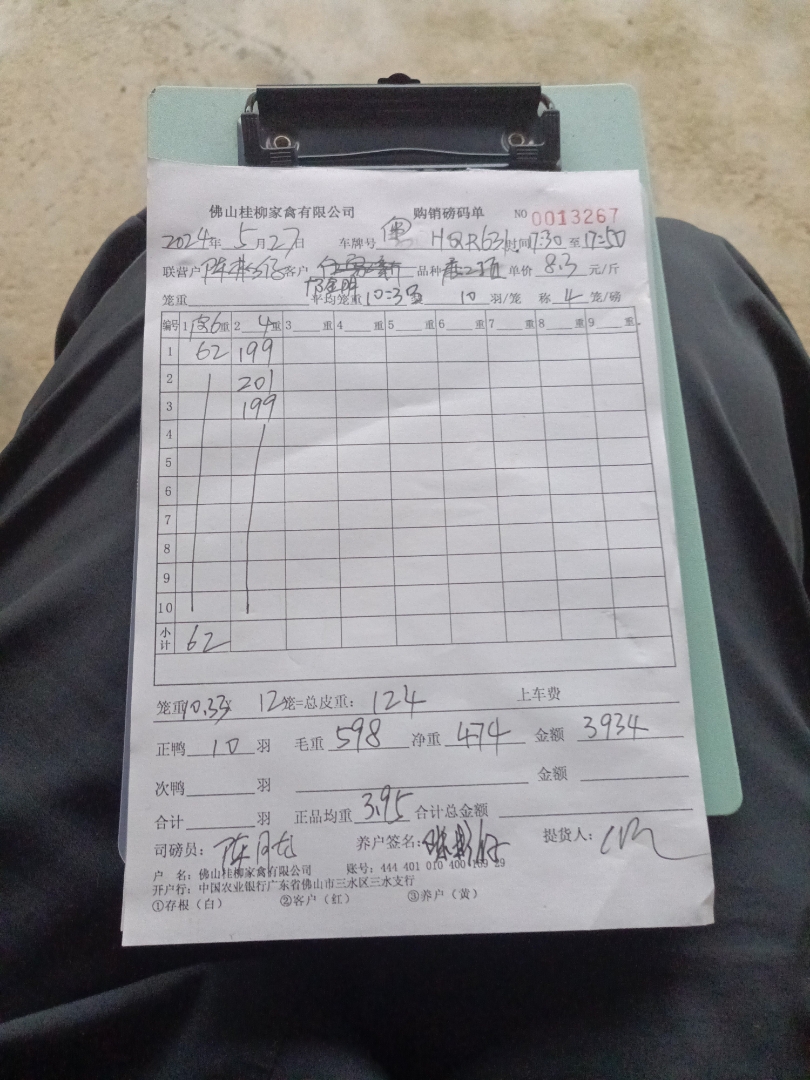 佛山桂柳家禽有限公司 购销磅码单 NO 0013267
2024年 5月27日 车牌号 粤 HQR631 时间 17:30 至 17:50
联营户 陈 客户 品种 单价 8.3 元/斤
笼重 平均笼重 10.33 10 羽/笼 称 4 笼/磅
编号 1 皮6重 2 4重 3 重 4 重 5 重 6 重 7 重 8 重 9 重
1 62 199
2 201
3 199
4
5
6
7
8
9
10
小计 62
笼重10.33 12笼=总皮重: 124 上车费
正鸭 10 羽 毛重 598 净重 474 金额 3934
次鸭 羽 金额
合计 羽 正品均重 3.95 合计总金额
司磅员: 陈月 养户签名: 提货人:
户 名: 佛山桂柳家禽有限公司 账号: 444 401 010 400 169 29
开户行: 中国农业银行广东省佛山市三水区三水支行
①存根(白) ②客户(红) ③养户(黄)